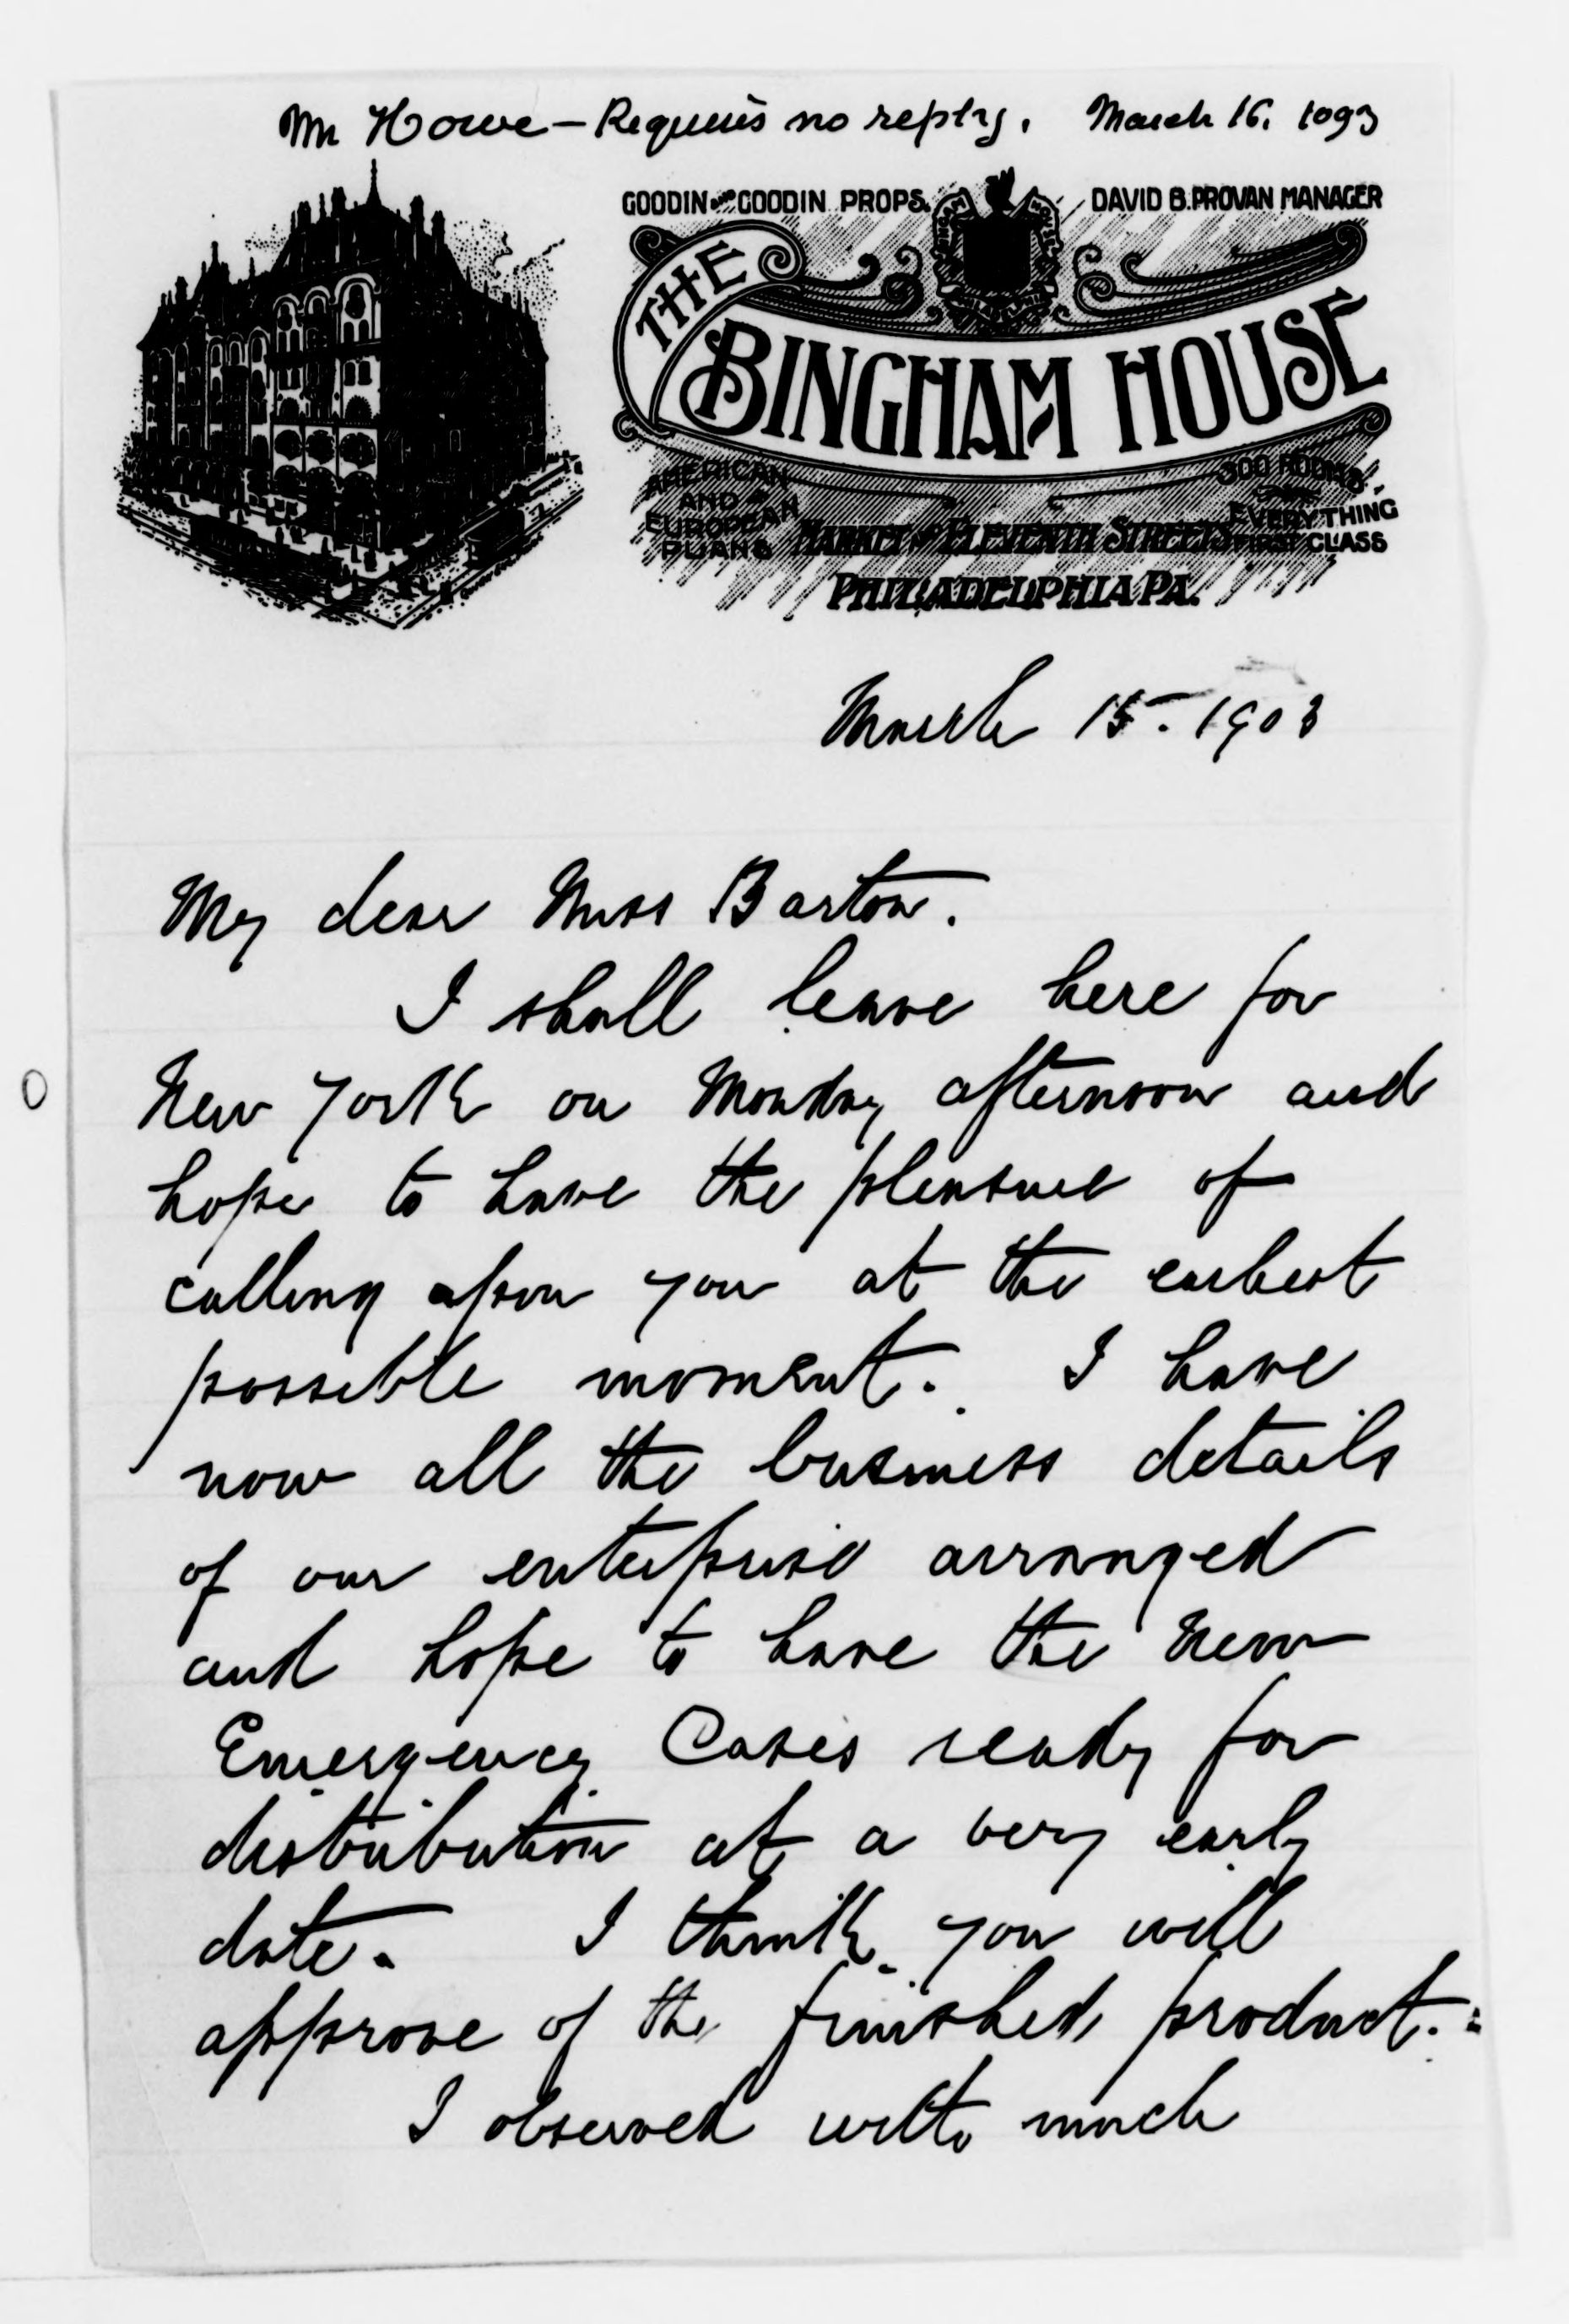 Mr Howe - Requires no reply. March 16. 1093
GOODIN AND GOODIN PROPS. DAVID B. PROVAN MANAGER
THE
BINGHAM HOUSE
AMERICAN
AND
EUROPEAN
PLANS
300 ROOMS
EVERYTHING
FIRST CLASS
MARKET AND ELEVENTH STREETS
PHILADELPHIA PA.
March 15. 1903
My dear Miss Barton.
I shall leave here for
New York on Monday afternoon and
hope to have the pleasure of
calling upon you at the earliest
possible moment. I have
now all the business details
of our enterprise arranged
and hope to have the new
Emergency Cases ready for
distribution at a very early
date. I think you will
approve of the finished product.
I observed with much